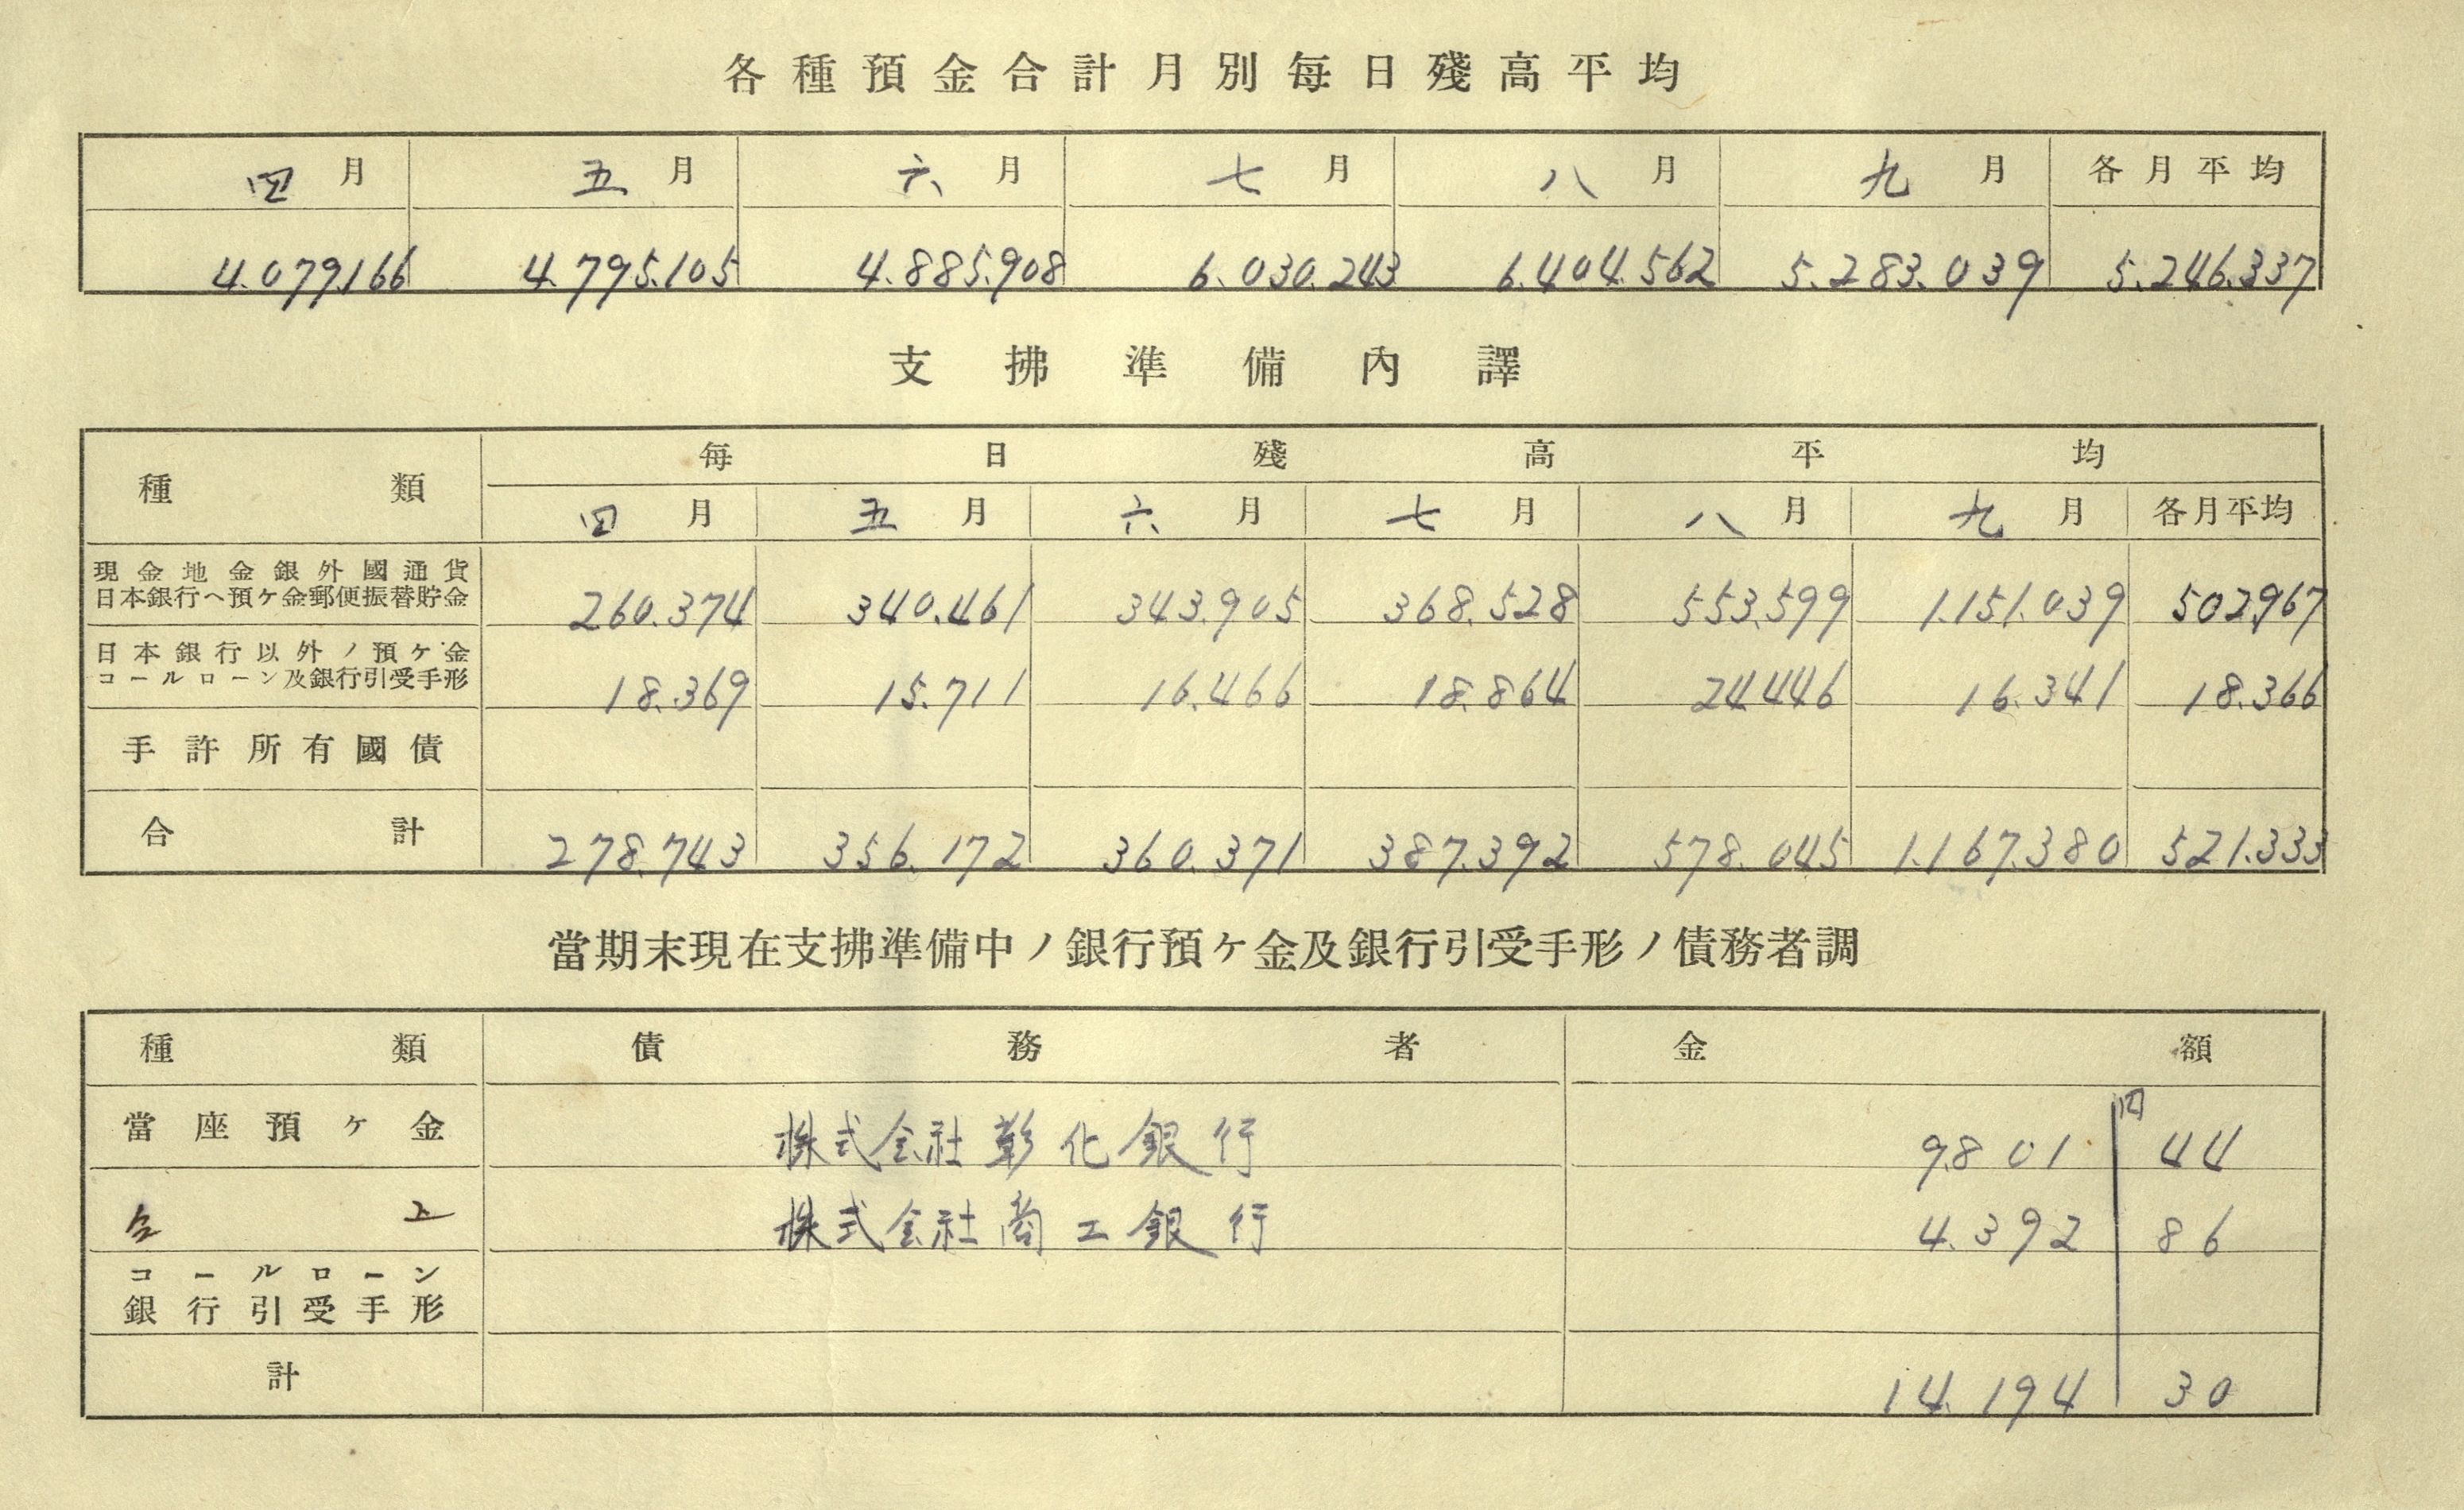 各種預金合計月別每日殘高平均
四月 五月 六月 七月 八月 九月 各月平均
4.079.166 4.795.105 4.885.908 6.030.243 6.404.562 5.283.039 5.246.337
支拂準備內譯
種類 每日殘高平均
四月 五月 六月 七月 八月 九月 各月平均
現金地金銀外國通貨
日本銀行ヘ預ケ金郵便振替貯金 260.374 340.461 343.905 368.528 553.599 1.151.039 502.967
日本銀行以外ノ預ケ金
コールローン及銀行引受手形 18.369 15.711 16.466 18.864 24.446 16.341 18.366
手許所有國債
合計 278.743 356.172 360.371 387.392 578.045 1.167.380 521.333
當期末現在支拂準備中ノ銀行預ケ金及銀行引受手形ノ債務者調
種類 債務者 金額
當座預ケ金 株式会社彰化銀行 9.801 円 44
仝上 株式会社商工銀行 4.392 86
コールローン
銀行引受手形
計 14.194 30